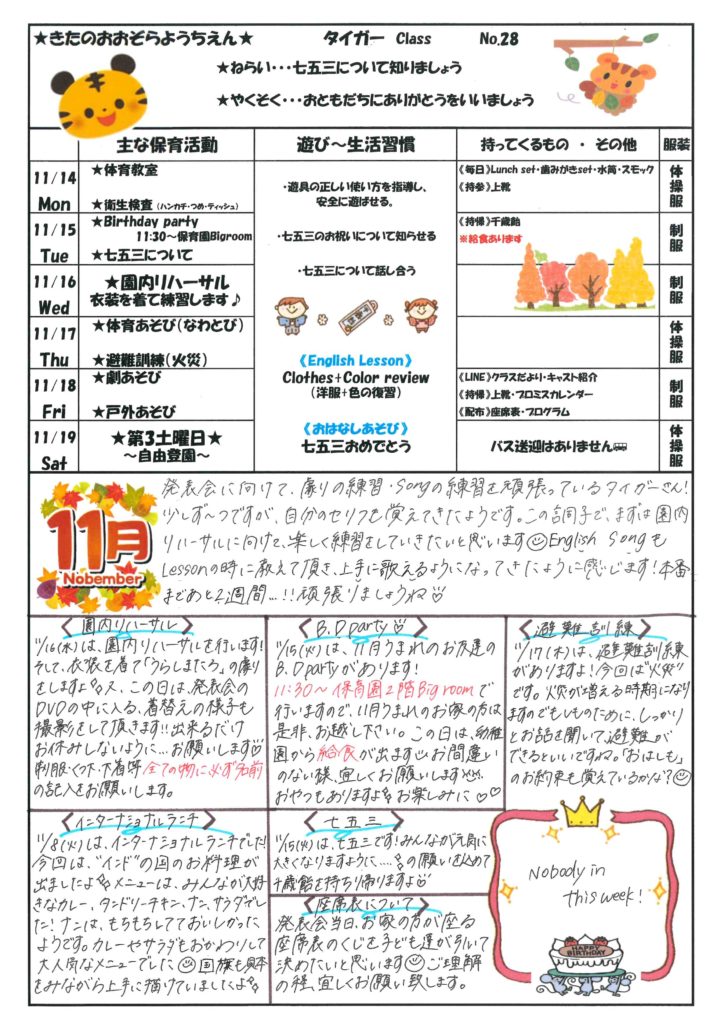 ★きたのおおぞらようちえん★ タイガー Class No.28
★ねらい・・・七五三について知りましょう
★やくそく・・・おともだちにありがとうをいいましょう
主な保育活動 遊び～生活習慣 持ってくるもの ・ その他 服装
11/14 Mon
★体育教室
★衛生検査（ハンカチ・つめ・ティッシュ）
《毎日》Lunch set・歯みがきset・水筒・スモック
《持参》上靴
体操服
11/15 Tue
★Birthday party
11:30～保育園Bigroom
★七五三について
《持帰》千歳飴
※給食あります
制服
11/16 Wed
★園内リハーサル
衣装を着て練習します♪
制服
11/17 Thu
★体育あそび(なわとび)
★避難訓練(火災)
体操服
11/18 Fri
★劇あそび
★戸外あそび
《LINE》クラスだより・キャスト紹介
《持帰》上靴・プロミスカレンダー
《配布》座席表・プログラム
制服
11/19 Sat
★第3土曜日★
～自由登園～
バス送迎はありません
体操服
・遊具の正しい使い方を指導し、
安全に遊ばせる。
・七五三のお祝いについて知らせる
・七五三について話し合う
《English Lesson》
Clothes+Color review
(洋服+色の復習)
《おはなしあそび》
七五三おめでとう
11月
Nobember
発表会に向けて、劇りの練習・Songの練習を頑張っているタイガーさん!
少しず〜つですが、自分のセリフも覚えてきたようです。この調子で、まずは園内
リハーサルに向けて、楽しく練習をしていきたいと思います English Songも
Lessonの時に教えて頂き、上手に歌えるようになってきたように感じます!本番
まであと2週間…!!頑張りましょうね
〈園内リハーサル〉
11/16(水)は、園内リハーサルを行います!
そして、衣装を着て「うらしまたろう」の劇り
をしますよ 又、この日は、発表会の
DVDの中に入る、着替えの様子も
撮影をして頂きます!!出来るだけ
お休みしないように…お願いします♡
制服・くつ下・下着等 全ての物に必ず名前
の記入をお願いします。
〈B.D party♡〉
11/15(火)は、11月うまれのお友達の
B.D partyがあります!
11:30～ 保育園2階Big roomで
行いますので、11月うまれのお家の方は
是非、お越し下さい。この日は、幼稚
園から給食が出ます お間違い
のない様、宜しくお願いします
おやつもありますよ お楽しみに♡♡
〈避難訓練〉
11/17(木)は、避難訓練
がありますよ!今回は"火災"
です。火災が増える時期になり
ますのでもしものために、しっかり
とお話を聞いて避難が
できるといいですね。「おはしも」
のお約束も覚えているかな?
〈インターナショナルランチ〉
11/8(火)は、インターナショナルランチでした!
今回は、"インド"の国のお料理が
出ましたよ メニューは、みんなが大好
きなカレー、タンドリーチキン、ナン、サラダでし
た!ナンは、もちもちしてておいしかった
ようです。カレーやサラダもおかわりして
大人気なメニューでした 国旗も見本
をみながら上手に描けていましたよ
〈七五三〉
11/15(火)は、七五三です!みんなが元気に
大きくなりますように…の願いを込めて
千歳飴を持ち帰りますよ
〈座席表について〉
発表会当日、お家の方が座る
座席表のくじを子ども達が引いて
決めたいと思います ご理解
の程、宜しくお願い致します。
Nobody in
this week!
HAPPY
BIRTHDAY